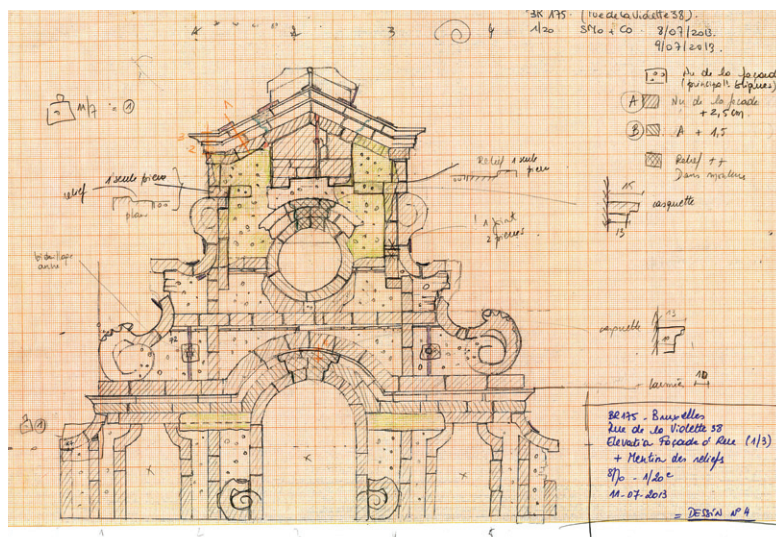 BR 175. (rue de la Violette 38).
1/20 SMo + Co 8/07/2013.
9/07/2013.
1 2 3 4
Nu de la façade
(principalt briques)
A Nu de la façade
+ 2,5 cm
B A + 1,5
Relief ++
1
relief 1 seule pierre
plan
Relief 1 seule
pierre
! 1 joint
2 pierres
15
casquette
13
casquette
13
larmier 10
BR175 - Bruxelles
Rue de la Violette 38
Elevation Façade à Rue (1/3)
+ Mention des reliefs
SMo - 1/20e
11-07-2013
= DESSIN N° 4